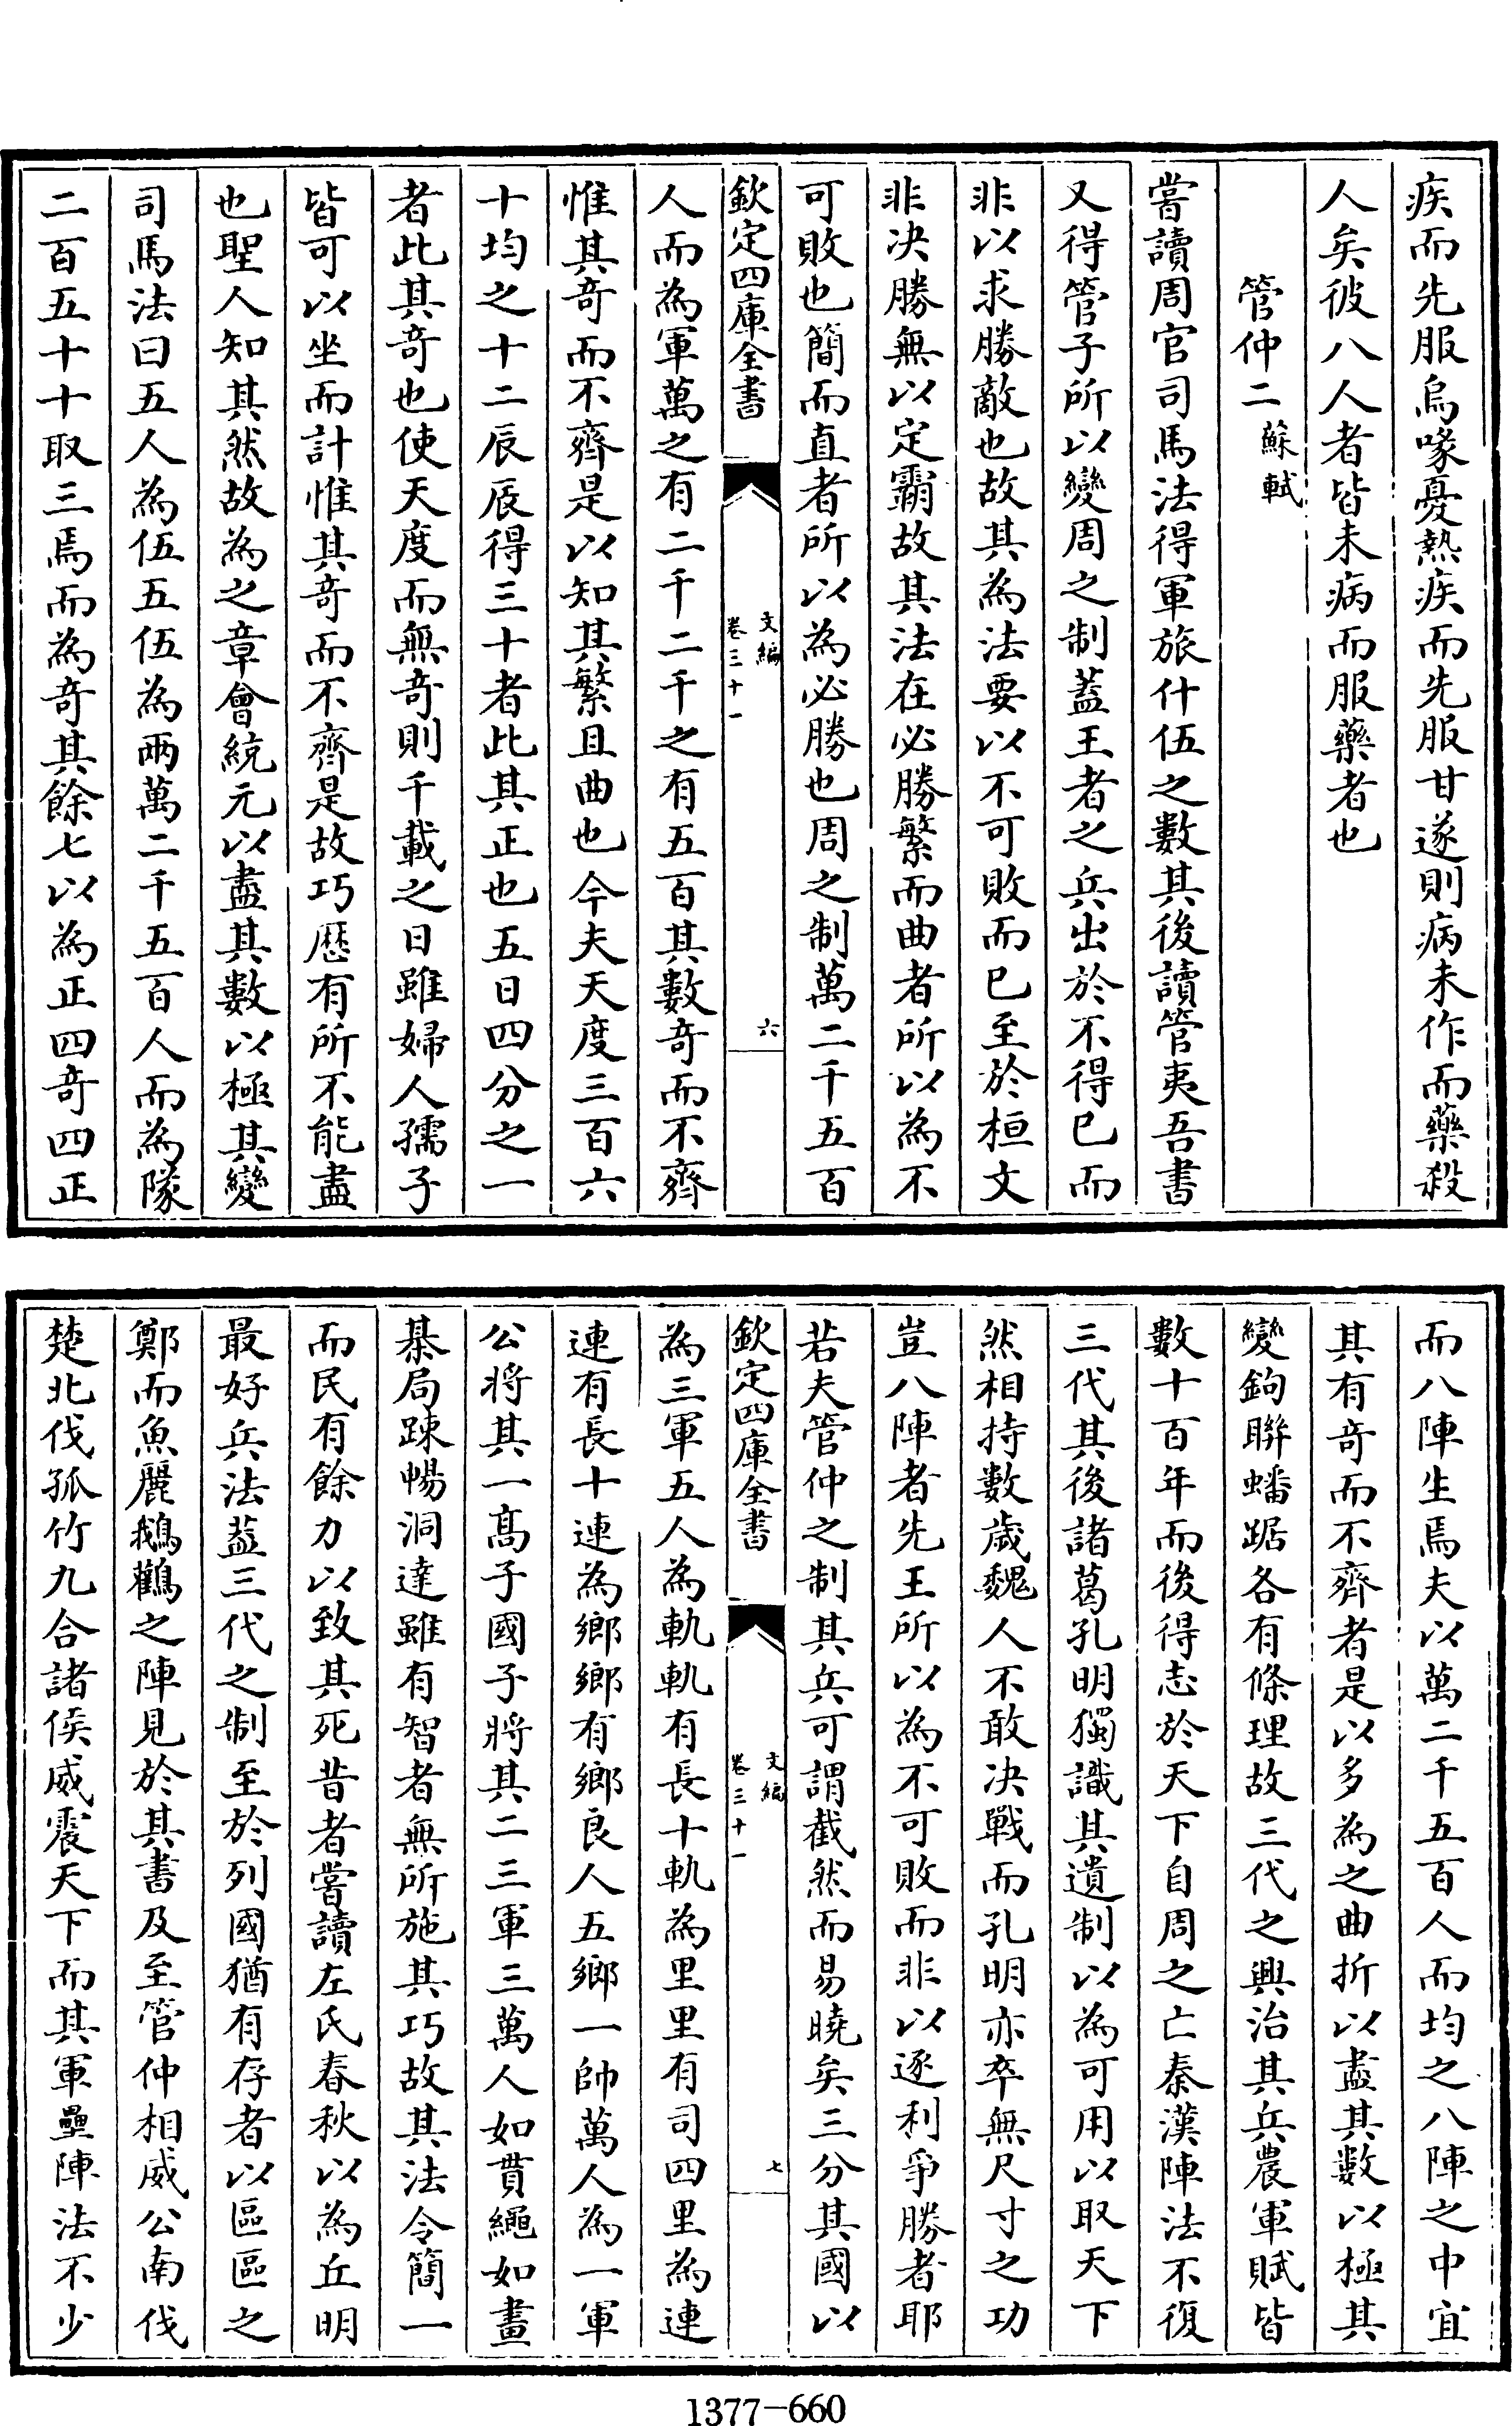 疾而先服烏喙憂熱疾而先服甘遂則病未作而藥殺
人矣彼八人者皆未病而服藥者也
管仲二 蘇軾
嘗讀周官司馬法得軍旅什伍之數其後讀管夷吾書
又得管子所以變周之制蓋王者之兵出於不得已而
非以求勝敵也故其為法要以不可敗而已至於桓文
非决勝無以定霸故其法在必勝繁而曲者所以為不
可敗也簡而直者所以為必勝也周之制萬二千五百
欽定四庫全書 文編 卷三十一 六
人而為軍萬之有二千二千之有五百其數奇而不齊
惟其奇而不齊是以知其繁且曲也今夫天度三百六
十均之十二辰辰得三十者此其正也五日四分之一
者此其奇也使天度而無奇則千載之日雖婦人孺子
皆可以坐而計惟其奇而不齊是故巧厯有所不能盡
也聖人知其然故為之章會統元以盡其數以極其變
司馬法曰五人為伍五伍為兩萬二千五百人而為隊
二百五十十取三焉而為奇其餘七以為正四奇四正
而八陣生焉夫以萬二千五百人而均之八陣之中宜
其有奇而不齊者是以多為之曲折以盡其數以極其
變鉤聨蟠踞各有條理故三代之興治其兵農軍賦皆
數十百年而後得志於天下自周之亡秦漢陣法不復
三代其後諸葛孔明獨識其遺制以為可用以取天下
然相持數歲魏人不敢决戰而孔明亦卒無尺寸之功
豈八陣者先王所以為不可敗而非以逐利爭勝者耶
若夫管仲之制其兵可謂截然而易曉矣三分其國以
欽定四庫全書 文編 卷三十一 七
為三軍五人為軌軌有長十軌為里里有司四里為連
連有長十連為鄉鄉有鄉良人五鄉一帥萬人為一軍
公將其一高子國子將其二三軍三萬人如貫繩如畫
棊局踈暢洞達雖有智者無所施其巧故其法令簡一
而民有餘力以致其死昔者嘗讀左氏春秋以為丘明
最好兵法蓋三代之制至於列國猶有存者以區區之
鄭而魚麗鵝鸛之陣見於其書及至管仲相威公南伐
楚北伐孤竹九合諸侯威震天下而其軍壘陣法不少
1377—660